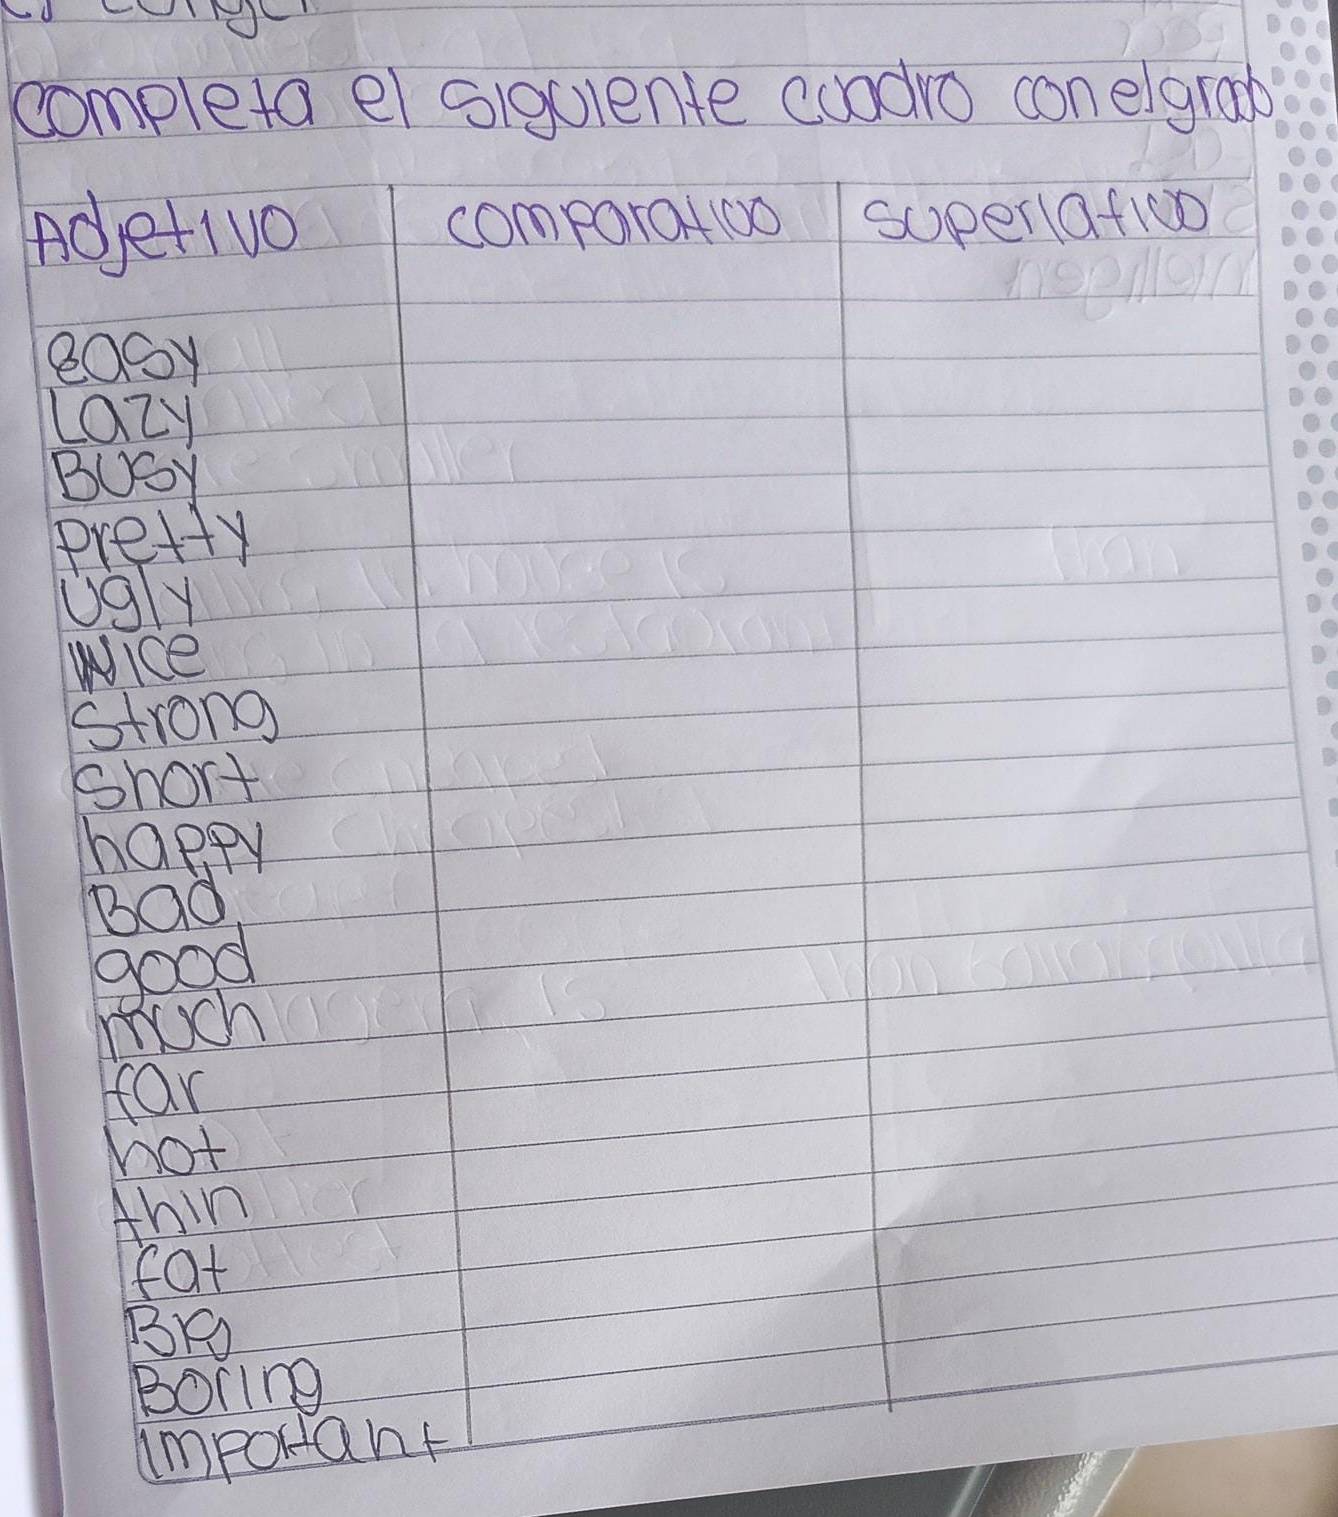 completa el siguiente cuadro con el grado
Adjetivo comparativo superlativo
easy
Lazy
Busy
pretty
Ugly
Nice
Strong
Short
happy
Bad
good
much
far
hot
thin
fat
Big
Boring
important